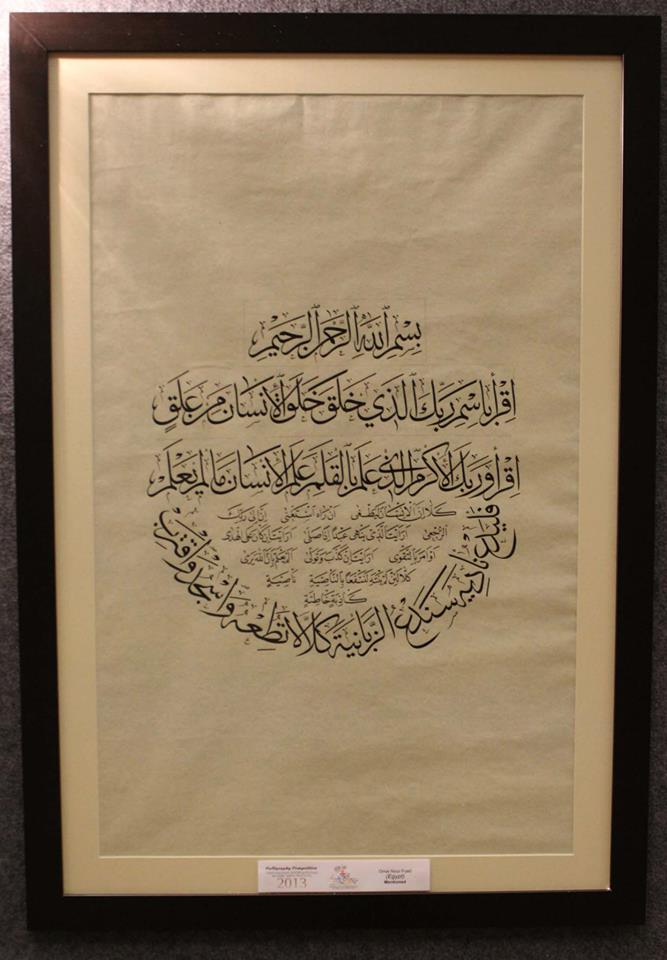 بِسْمِ ٱللَّهِ ٱلرَّحْمٰنِ ٱلرَّحِيْمِ
اقْرَأْ بِاسْمِ رَبِّكَ الَّذِي خَلَقَ خَلَقَ الْإِنْسَانَ مِنْ عَلَقٍ
اقْرَأْ وَرَبُّكَ الْأَكْرَمُ الَّذِي عَلَّمَ بِالْقَلَمِ عَلَّمَ الْإِنْسَانَ مَا لَمْ يَعْلَمْ
كلا ان الانسان ليطغى ان رآه استغنى ان الى ربك
الرجعى ارايت الذي ينهى عبدا اذا صلى ارايت ان كان على الهدى
او امر بالتقوى ارايت ان كذب وتولى الم يعلم بان الله يرى
كلا لئن لم ينته لنسفعا بالناصية ناصية
كاذبة خاطئة
فليدع ناديه سندع الزبانية كلا لا تطعه واسجد واقترب
Calligraphy Competition
2013
Omar Nour Fuad
(Egypt)
Mentioned